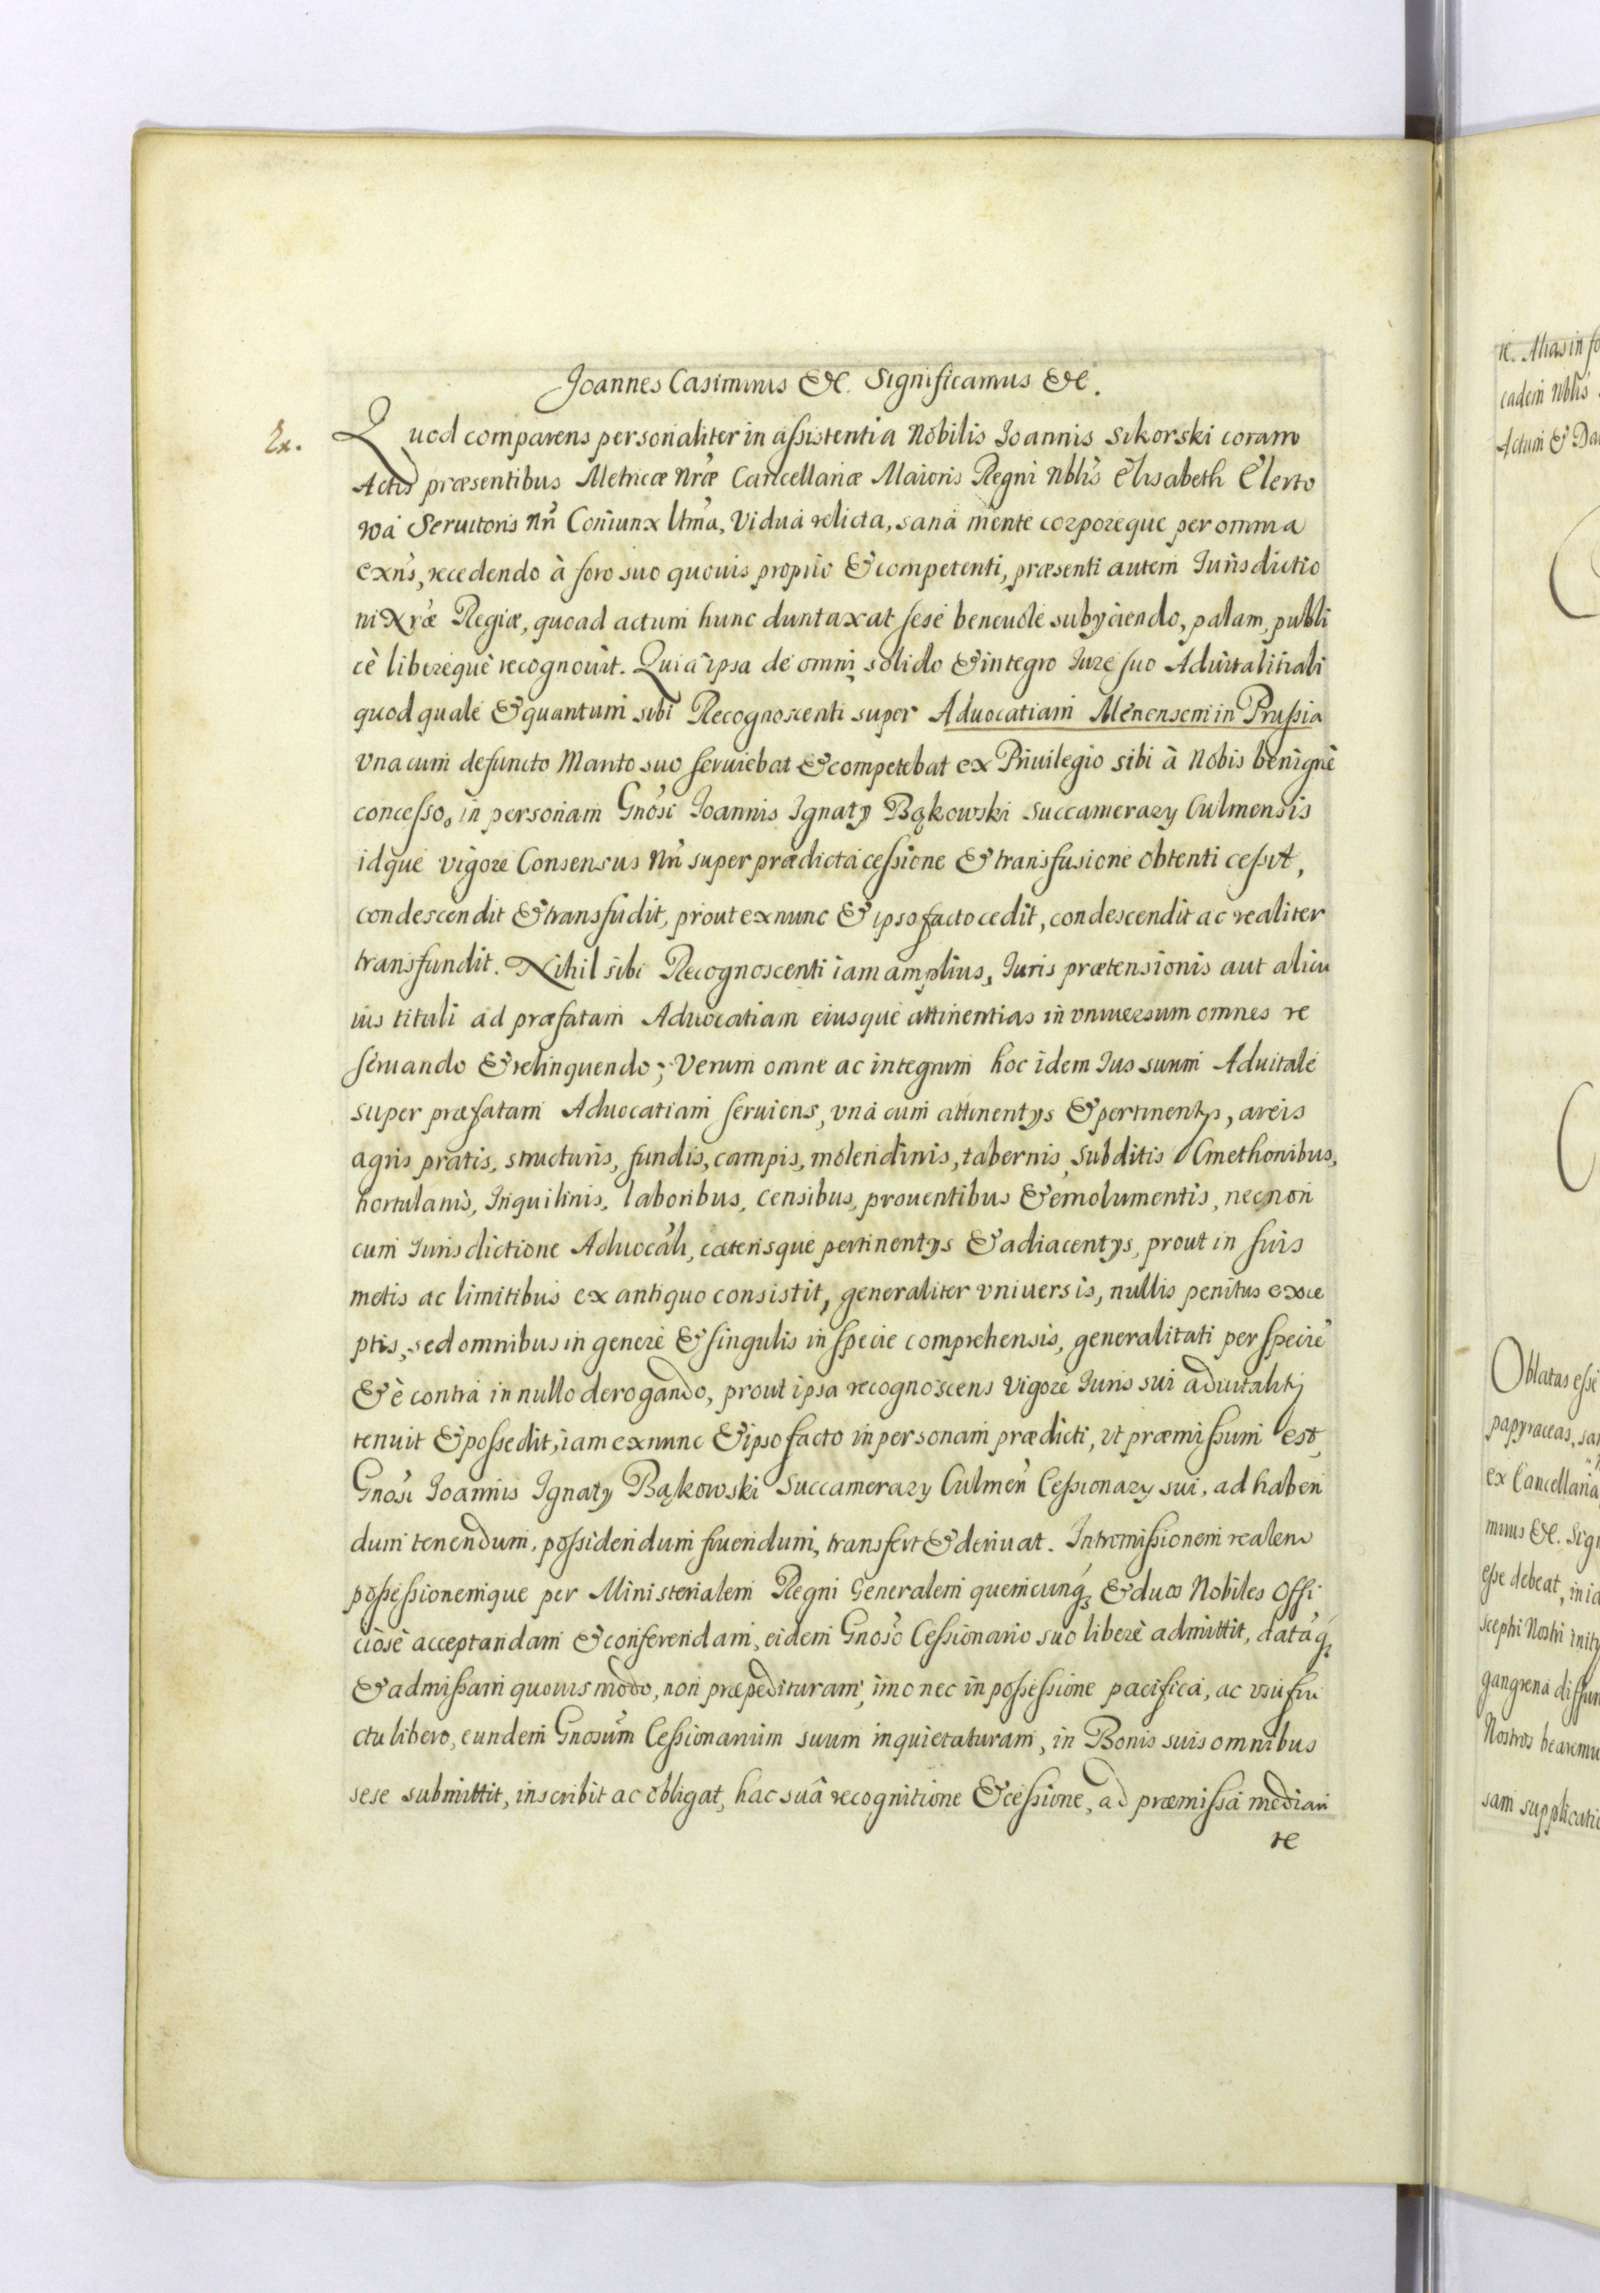 Joannes Casimirus &c. Significamus &c.
Ex.
Quod comparens personaliter in assistentia Nobilis Joannis Sikorski coram
Actis præsentibus Metricæ Nræ Cancellariæ Maioris Regni Nblis Elisabeth Elerto
wa Seruitoris Nri Coniunx ltma, Vidua relicta, sana mente corporeque per omnia
exns, recedendo à foro suo quouis proprio & competenti, præsenti autem Jurisdictio
ni Nræ Regiæ, quoad actum hunc duntaxat sese beneuole subijciendo, palam, publi
cè libereque recognouit. Quia ipsa de omni solido & integro Jure suo Aduitalitiali
quod quale & quantum sibi Recognoscenti super Aduocatiam Menensem in Prussia
vna cum defuncto Marito suo seruiebat & competebat ex Priuilegio sibi à Nobis benignè
concesso, in personam Gnosi Joannis Ignatij Bąkowski Succamerarij Culmensis
idque vigore Consensus Nri super prædicta cessione & transfusione obtenti cessit,
condescendit & transfudit, prout ex nunc & ipso facto cedit, condescendit ac realiter
transfundit. Nihil sibi Recognoscenti iam amplius, Juris prætensionis aut alicu
ius tituli ad præfatam Aduocatiam eiusque attinentias in vniuersum omnes re
seruando & relinquendo; Verum omne ac integrum hoc idem Jus suum Aduitale
super præfatam Aduocatiam seruiens, vna cum attinentijs & pertinentijs, areis
agris pratis, structuris, fundis, campis, molendinis, tabernis, subditis Cmethonibus,
hortulanis, Inquilinis, laboribus, censibus, prouentibus & emolumentis, necnon
cum Jurisdictione Aduocali, cæterisque pertinentijs & adiacentijs, prout in suis
metis ac limitibus ex antiquo consistit, generaliter vniuersis, nullis penitus exce
ptis, sed omnibus in genere & singulis in specie comprehensis, generalitati per specie
& è contra in nullo derogando, prout ipsa recognoscens vigore Juris sui aduitalitij
tenuit & possedit, iam ex nunc & ipso facto in personam prædicti, vt præmissum est,
Gnosi Joannis Ignatij Bąkowski Succamerarij Culmen Cessionarij sui, ad haben
dum tenendum, possidendum fruendum, transfert & deriuat. Intromissionem realem
possessionemque per Ministerialem Regni Generalem quemcunq; & duos Nobiles Offi
ciosè acceptandam & conferendam, eidem Gnoso Cessionario suo liberè admittit, dataq;
& admissam quouis modo, non præpedituram, imo nec in possessione pacifica, ac vsufru
ctu libero, eundem Gnosum Cessionarium suum inquietaturam, in Bonis suis omnibus
sese submittit, inscribit ac obligat, hac sua recognitione & cessione, ad præmissa median
te